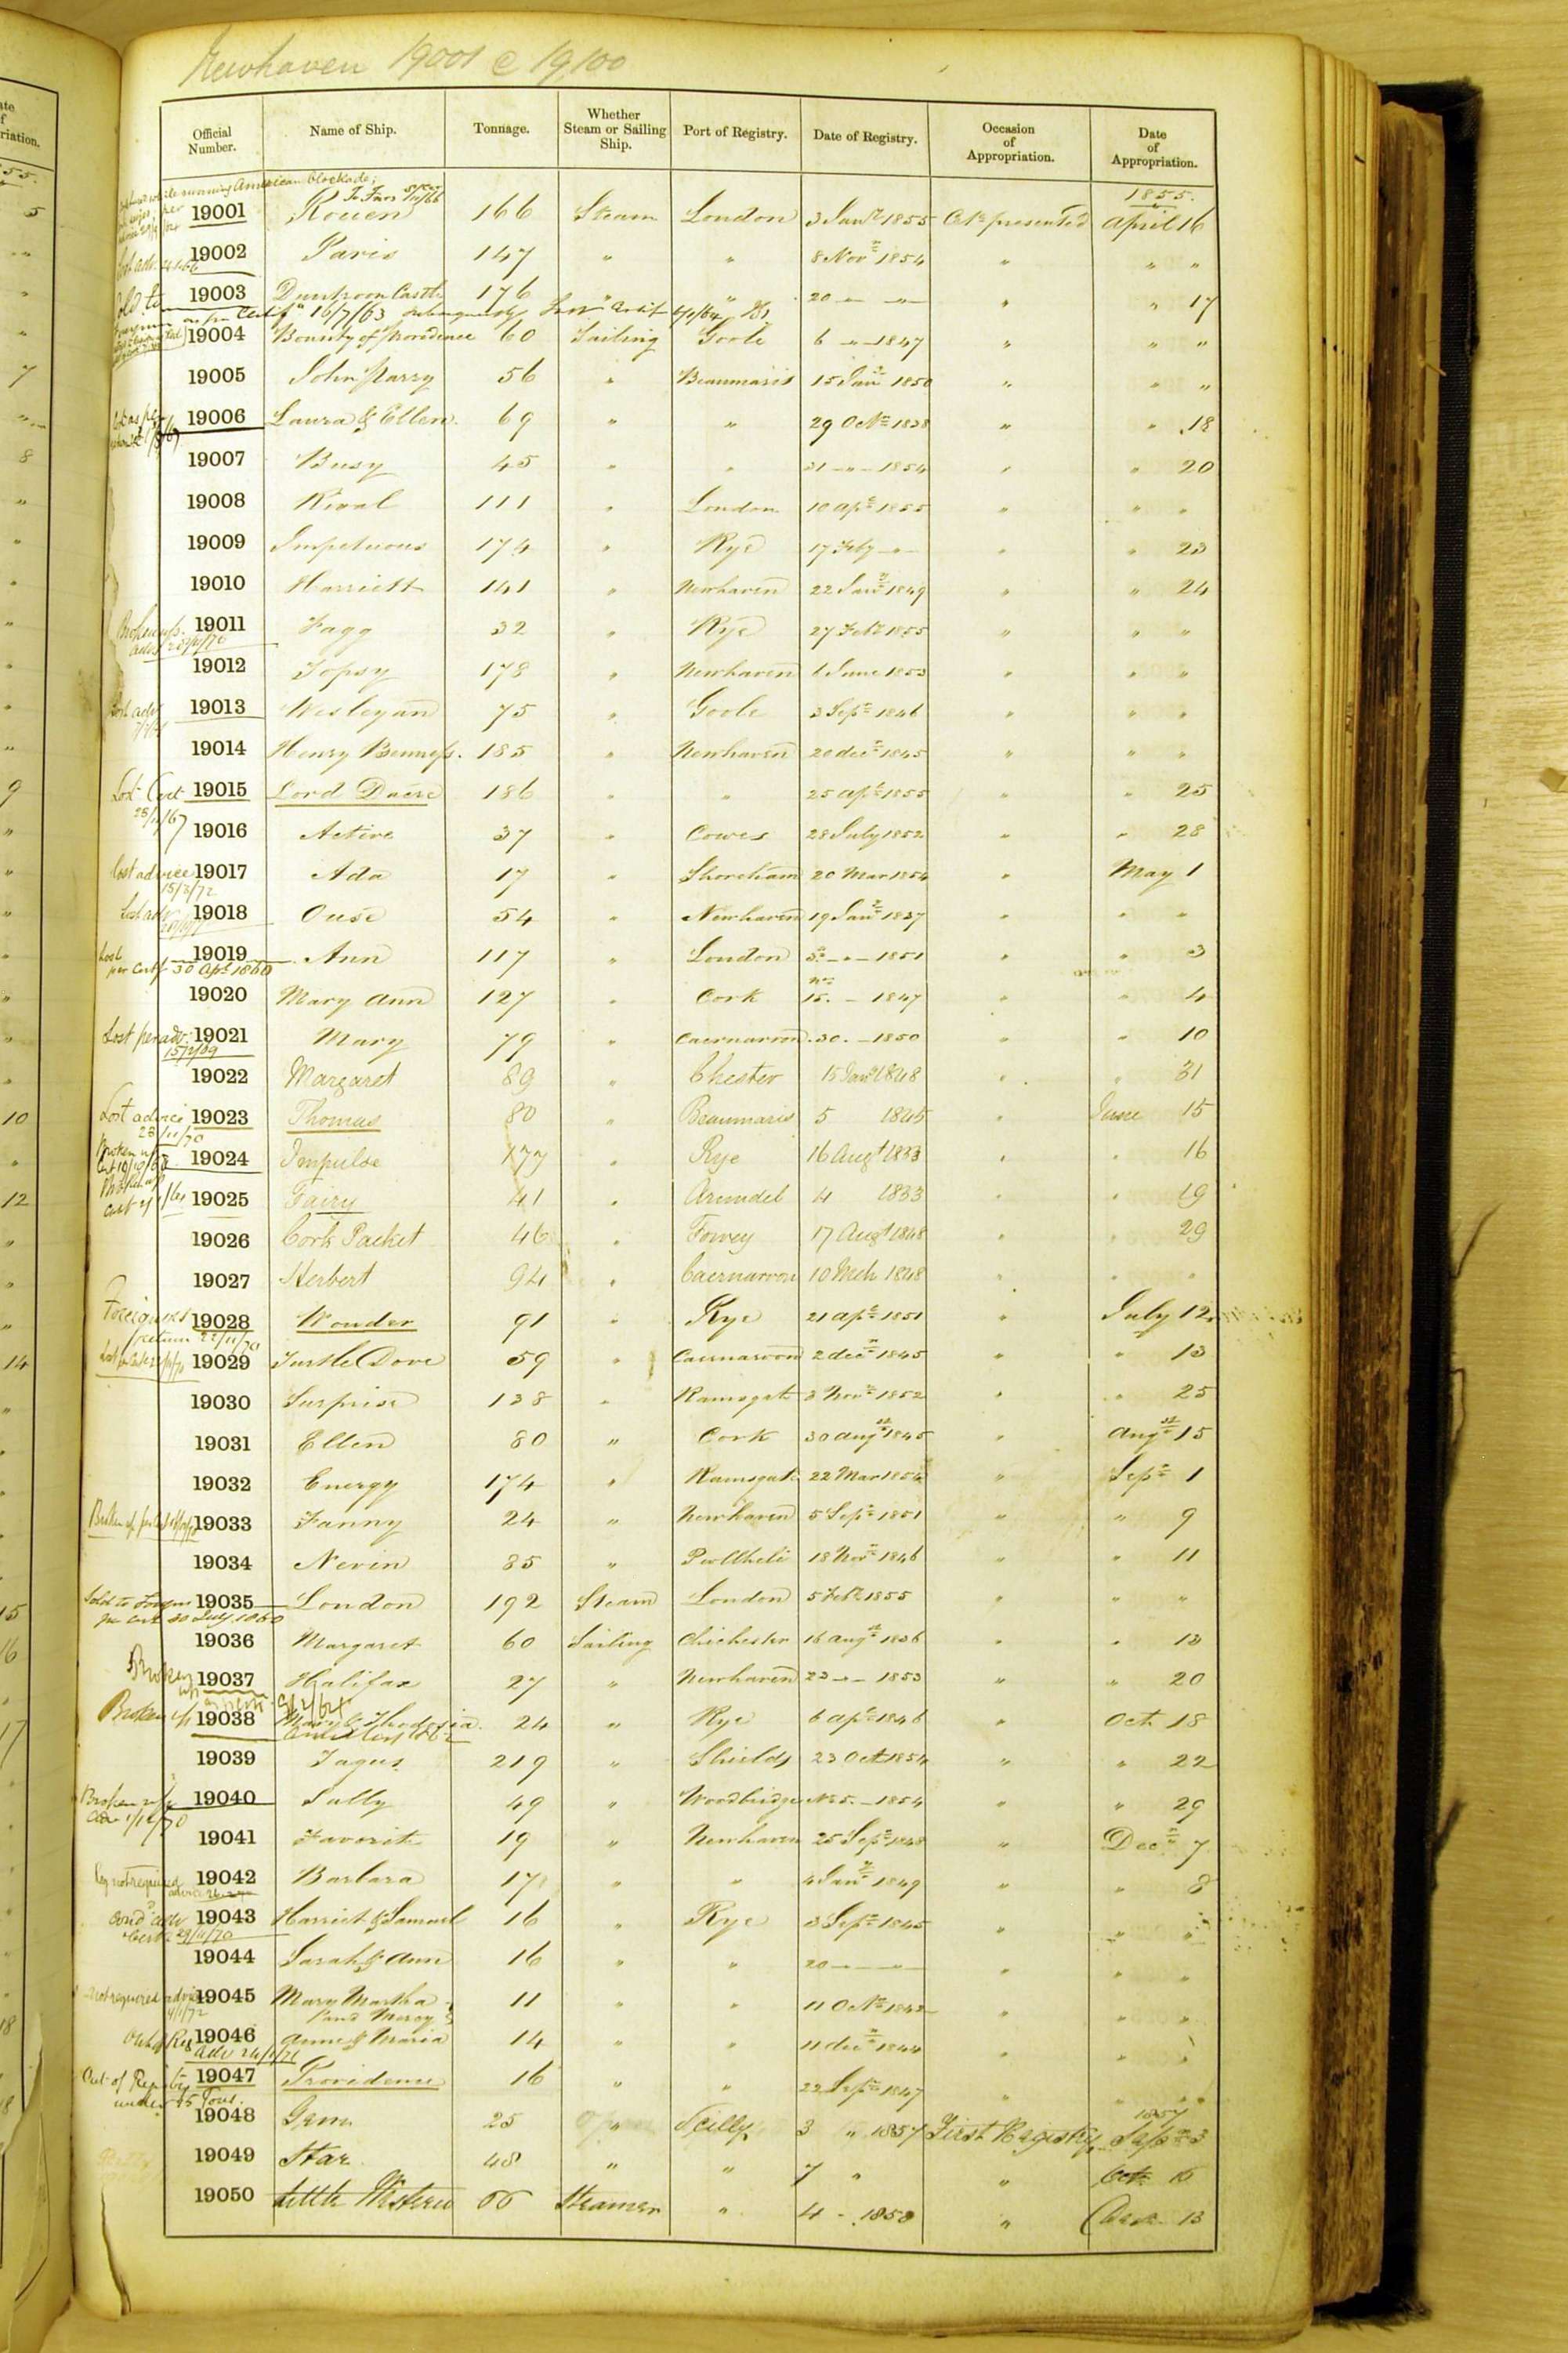 Newhaven 19001 @ 19100
Official Number. Name of Ship. Tonnage. Whether Steam or Sailing Ship. Port of Registry. Date of Registry. Occasion of Appropriation. Date of Appropriation.
running American blockade;
1855.
19001 Rouen 166 Steam London 3 Jany 1855 presented April 16
19002 Paris 147 " " 8 Nov 1854 " " "
19003 Dunstroon Castle 176 " " 20 " " " " 17
16/7/63
19004 Bounty of Providence 60 Sailing Goole 6 " 1847 " " "
19005 John Parry 56 " Beaumaris 15 Jan 1850 " " "
19006 Laura & Ellen 69 " " 29 Oct 1838 " " 18
19007 Busy 45 " " 31 " 1854 " " 20
19008 Rival 111 " London 10 Apl 1855 " " "
19009 Impetuous 174 " Rye 17 Feby " " " 23
19010 Harriett 141 " Newhaven 22 Jan 1849 " " 24
Broken up.
19011 Fagg 32 " Rye 27 Feb 1855 " " "
19012 Topsy 178 " Newhaven 1 June 1853 " " "
Lost adv
19013 Wesleyan 75 " Goole 3 Sep 1846 " " "
19014 Henry Benness. 185 " Newhaven 20 Dec 1845 " " "
Lost Cert
19015 Lord Dacre 186 " " 25 Apl 1855 " " 25
19016 Active 37 " Cowes 28 July 1852 " " 28
Lost advice 15/3/72
19017 Ada 17 " Shoreham 20 Mar 1854 " May 1
19018 Ouse 54 " Newhaven 19 Jan 1837 " " "
Lost per Cert 30 Apl 1860
19019 Ann 117 " London 3 " 1851 " " 3
19020 Mary Ann 127 " Cork 15 " 1847 " " 4
Lost per adv.
19021 Mary 79 " Caernarvon 30 " 1850 " " 10
19022 Margaret 89 " Chester 15 Jany 1848 " " 31
Lost advice 23/11/70
19023 Thomas 80 " Beaumaris 5 1845 " June 15
Broken up
19024 Impulse 177 " Rye 16 Augt 1833 " " 16
Broken up
19025 Fairy 41 " Arundel 4 1833 " " 19
19026 Cork Packet 46 " Fowey 17 Augt 1848 " " 29
19027 Herbert 94 " Caernarvon 10 Mch 1848 " " "
Foreigners return 22/11/70
19028 Wonder 91 " Rye 21 Apl 1851 " July 12
19029 Turtle Dove 59 " Caernarvon 2 Dec 1845 " " 13
19030 Surprise 138 " Ramsgate 3 Nov 1852 " " 25
19031 Ellen 80 " Cork 30 Aug 1845 " Aug 15
19032 Energy 174 " Ramsgate 22 Mar 1854 " Sep 1
Broken up
19033 Fanny 24 " Newhaven 5 Sep 1851 " " 9
19034 Nevin 85 " Pwllheli 18 Nov 1846 " " 11
Sold to Foreign per cert 30 July 1860
19035 London 192 Steam London 5 Feb 1855 " " "
19036 Margaret 60 Sailing Chichester 16 Aug 1836 " " 13
Broken up
19037 Halifax 27 " Newhaven 23 " 1853 " " 20
Broken up
19038 Mary & Theodosia 24 " Rye 6 Apl 1846 " Oct 18
19039 Tagus 219 " Shields 23 Oct 1854 " " 22
Broken up Adv 1/12/70
19040 Sally 49 " Woodbridge 5 " 1854 " " 29
19041 Favorite 19 " Newhaven 25 Sep 1848 " Dec 7
Reg not required
19042 Barbara 17 " " 4 Jan 1849 " " 8
29/11/70
19043 Harriet & Samuel 16 " Rye 3 Sep 1845 " " "
19044 Sarah & Ann 16 " " 20 " " " " "
not required advice 4/1/72
19045 Mary Martha and Mercy 11 " " 11 Oct " " "
Adv 24/1/71
19046 Anne & Maria 14 " " 11 Dec 1844 " " "
Out of Registry under 15 Tons.
19047 Providence 16 " " 22 Sep 1847 " " "
1857
19048 Gem 25 " Scilly 3 " 1857 First Registry Sep 3
19049 Star 48 " " 7 " " Oct 15
19050 Little Western Steamer " 4 " 1858 " 13